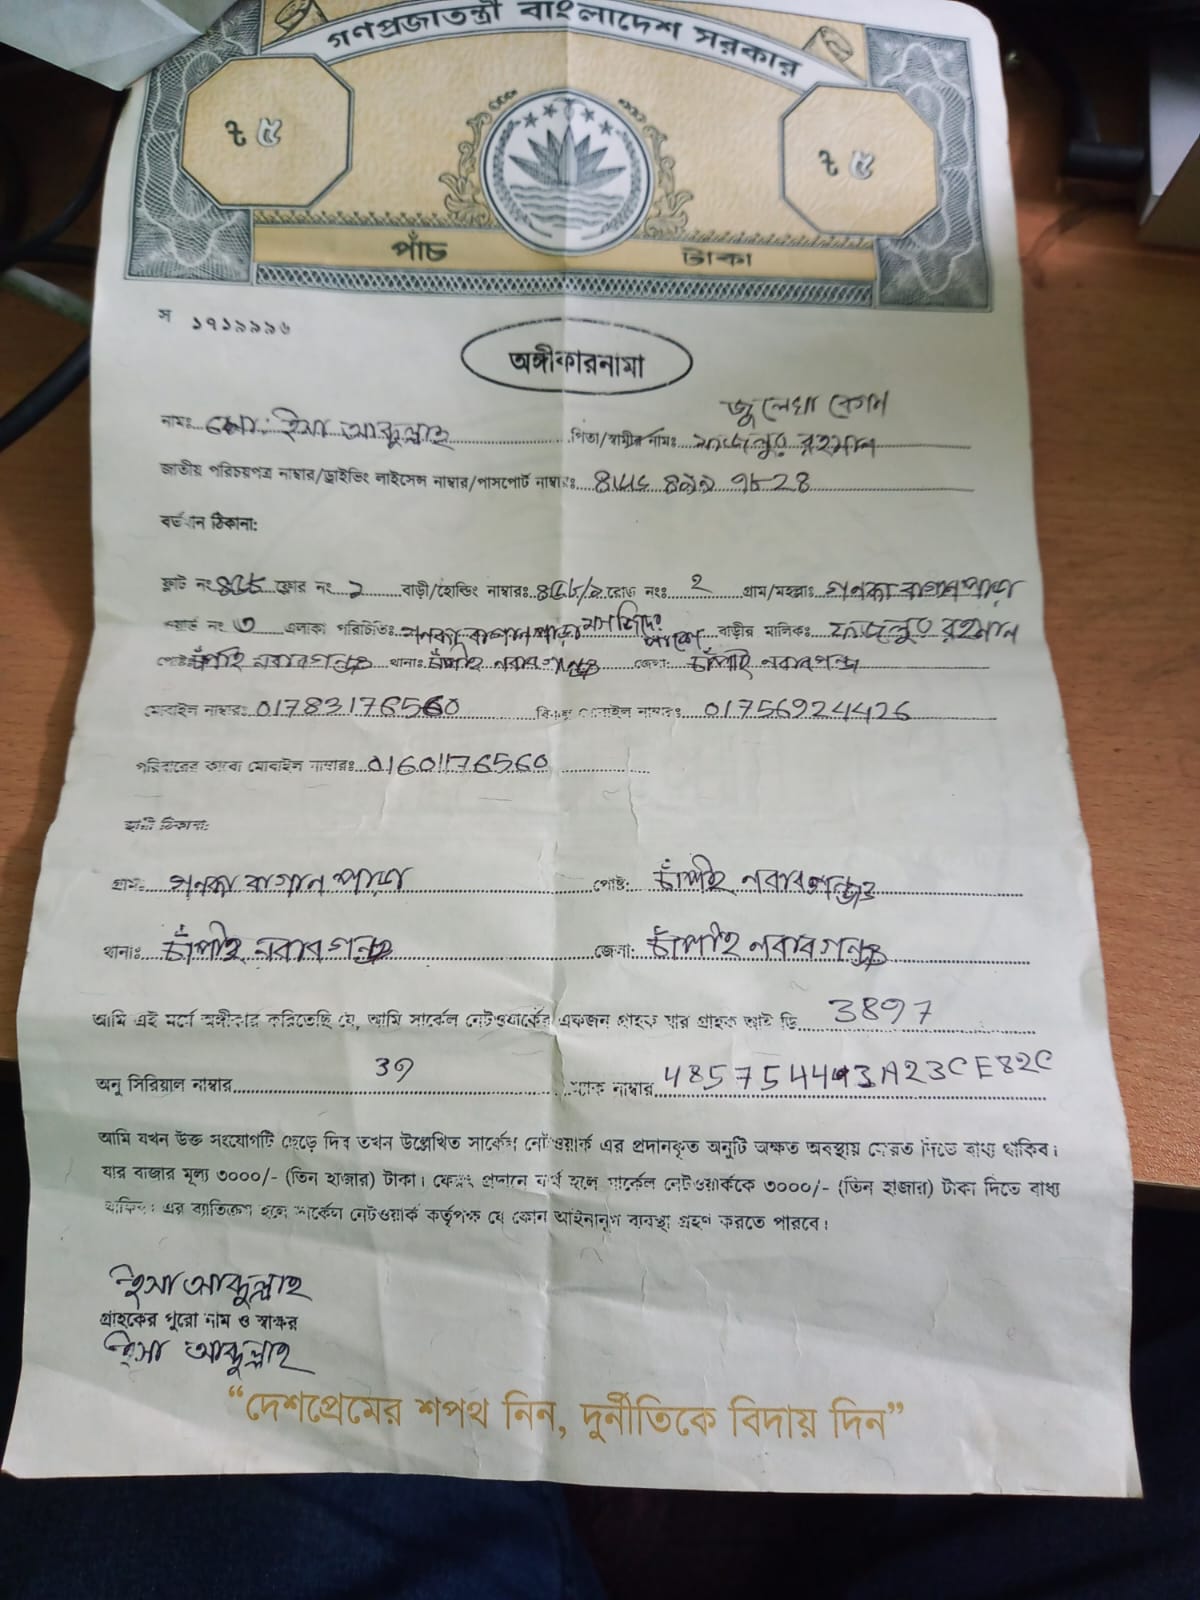 গণপ্রজাতন্ত্রী বাংলাদেশ সরকার
৳ ৫ ৳ ৫
পাঁচ টাকা
স ১৭১৯৯৯৬
অঙ্গীকারনামা
জুলেখা বেগম
নামঃ মোঃ ইসা আব্দুল্লাহ পিতা/স্বামীর নামঃ ফজলুর রহমান
জাতীয় পরিচয়পত্র নাম্বার/ড্রাইভিং লাইসেন্স নাম্বার/পাসপোর্ট নাম্বারঃ
বর্তমান ঠিকানা:
ফ্লাট নং ফ্লোর নং ১ বাড়ী/হোল্ডিং নাম্বারঃ রোড নংঃ ২ গ্রাম/মহল্লাঃ গনকা বাগানপাড়া
ওয়ার্ড নং ৩ এলাকা পরিচিতিঃ গনকা বাগান পাড়া মসজিদের পাশে বাড়ীর মালিকঃ ফজলুর রহমান
পোষ্টঃ চাঁপাই নবাবগঞ্জ থানাঃ চাঁপাই নবাবগঞ্জ জেলা: চাঁপাই নবাবগঞ্জ
মোবাইল নাম্বারঃ 01783176560 মোবাইল নাম্বারঃ 01756924426
পরিবারের কারো মোবাইল নাম্বারঃ 01601176560
স্থায়ী ঠিকানা:
গ্রাম: গনকা বাগান পাড়া পোষ্ট: চাঁপাই নবাবগঞ্জ
থানাঃ চাঁপাই নবাবগঞ্জ জেলা: চাঁপাই নবাবগঞ্জ
আমি এই মর্মে অঙ্গীকার করিতেছি যে, আমি সার্কেল নেটওয়ার্কের একজন গ্রাহক যার গ্রাহক আই ডি 3897
অনু সিরিয়াল নাম্বার 39 ম্যাক নাম্বার 485754443A23CE82C
আমি যখন উক্ত সংযোগটি ছেড়ে দিব তখন উল্লেখিত সার্কেল নেটওয়ার্ক এর প্রদানকৃত অনুটি অক্ষত অবস্থায় ফেরত দিতে বাধ্য থাকিব।
যার বাজার মূল্য ৩০০০/- (তিন হাজার) টাকা। ফেরৎ প্রদানে ব্যর্থ হলে সার্কেল নেটওয়ার্ককে ৩০০০/- (তিন হাজার) টাকা দিতে বাধ্য
থাকিব। এর ব্যতিক্রম হলে সার্কেল নেটওয়ার্ক কর্তৃপক্ষ যে কোন আইনানুগ ব্যবস্থা গ্রহণ করতে পারবে।
ইসা আব্দুল্লাহ
গ্রাহকের পুরো নাম ও স্বাক্ষর
ইসা আব্দুল্লাহ
“দেশপ্রেমের শপথ নিন, দুর্নীতিকে বিদায় দিন”